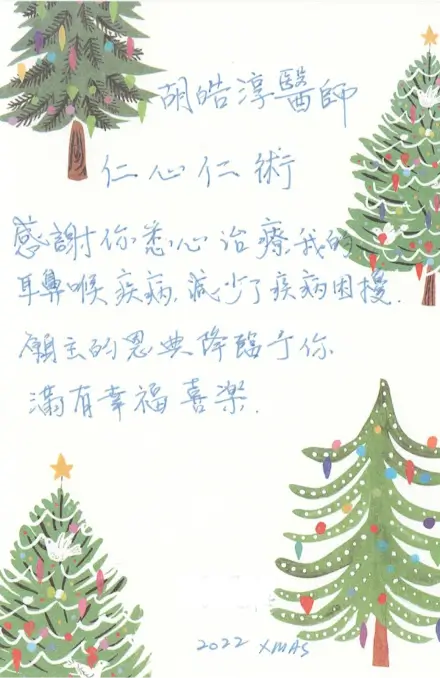 胡皓淳醫師
仁心仁術
感謝你悉心治療我的
耳鼻喉疾病,減少了疾病困擾.
願主的恩典降臨于你
滿有幸福喜樂.
2022 XMAS